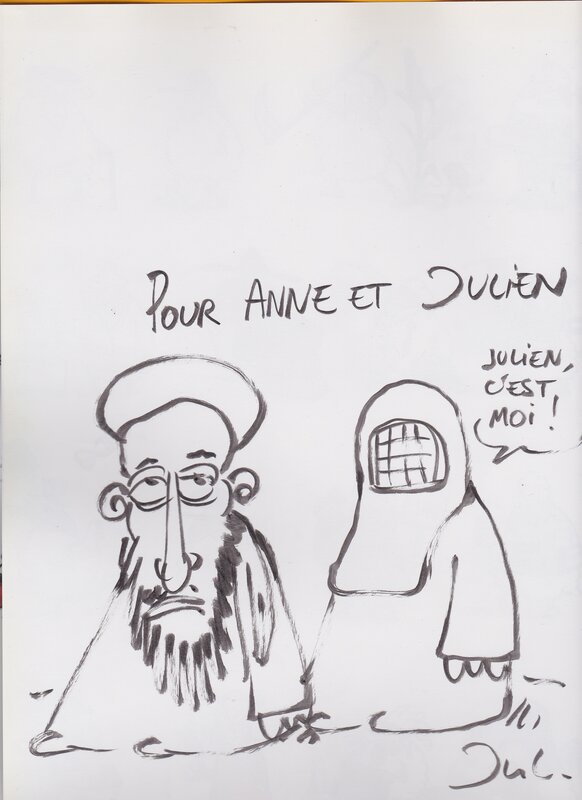 POUR ANNE ET JULIEN
JULIEN,
C'EST
MOI !
Jul.